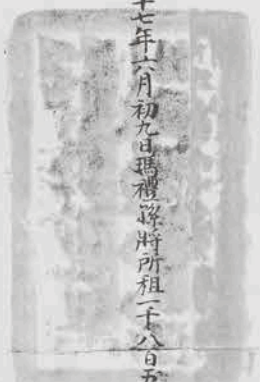 十七年六月初九日瑪禮孫將所租一千八百五